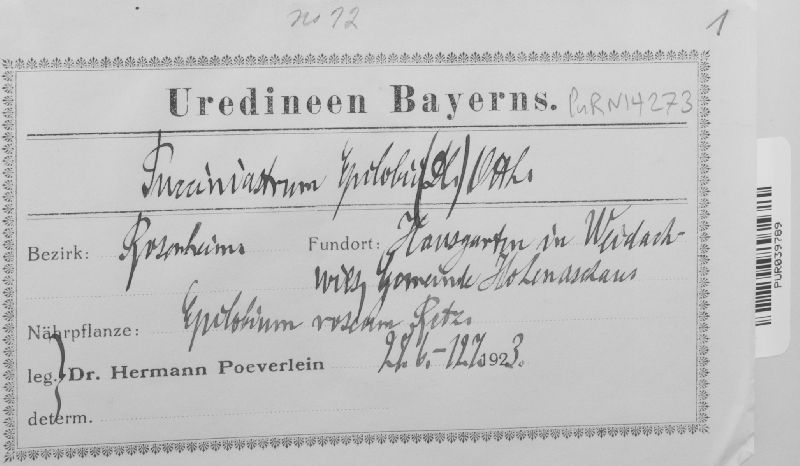 no 72
1
Uredineen Bayerns. PURN14273
Pucciniastrum Epilobii (Pers.) Otth.
Bezirk: Rosenheim.
Fundort: Hausgarten in Weidach-
wies, Gemeinde Hohenaschau
Nährpflanze: Epilobium roseum Retz.
leg. Dr. Hermann Poeverlein 1923.
determ.
PUR039789